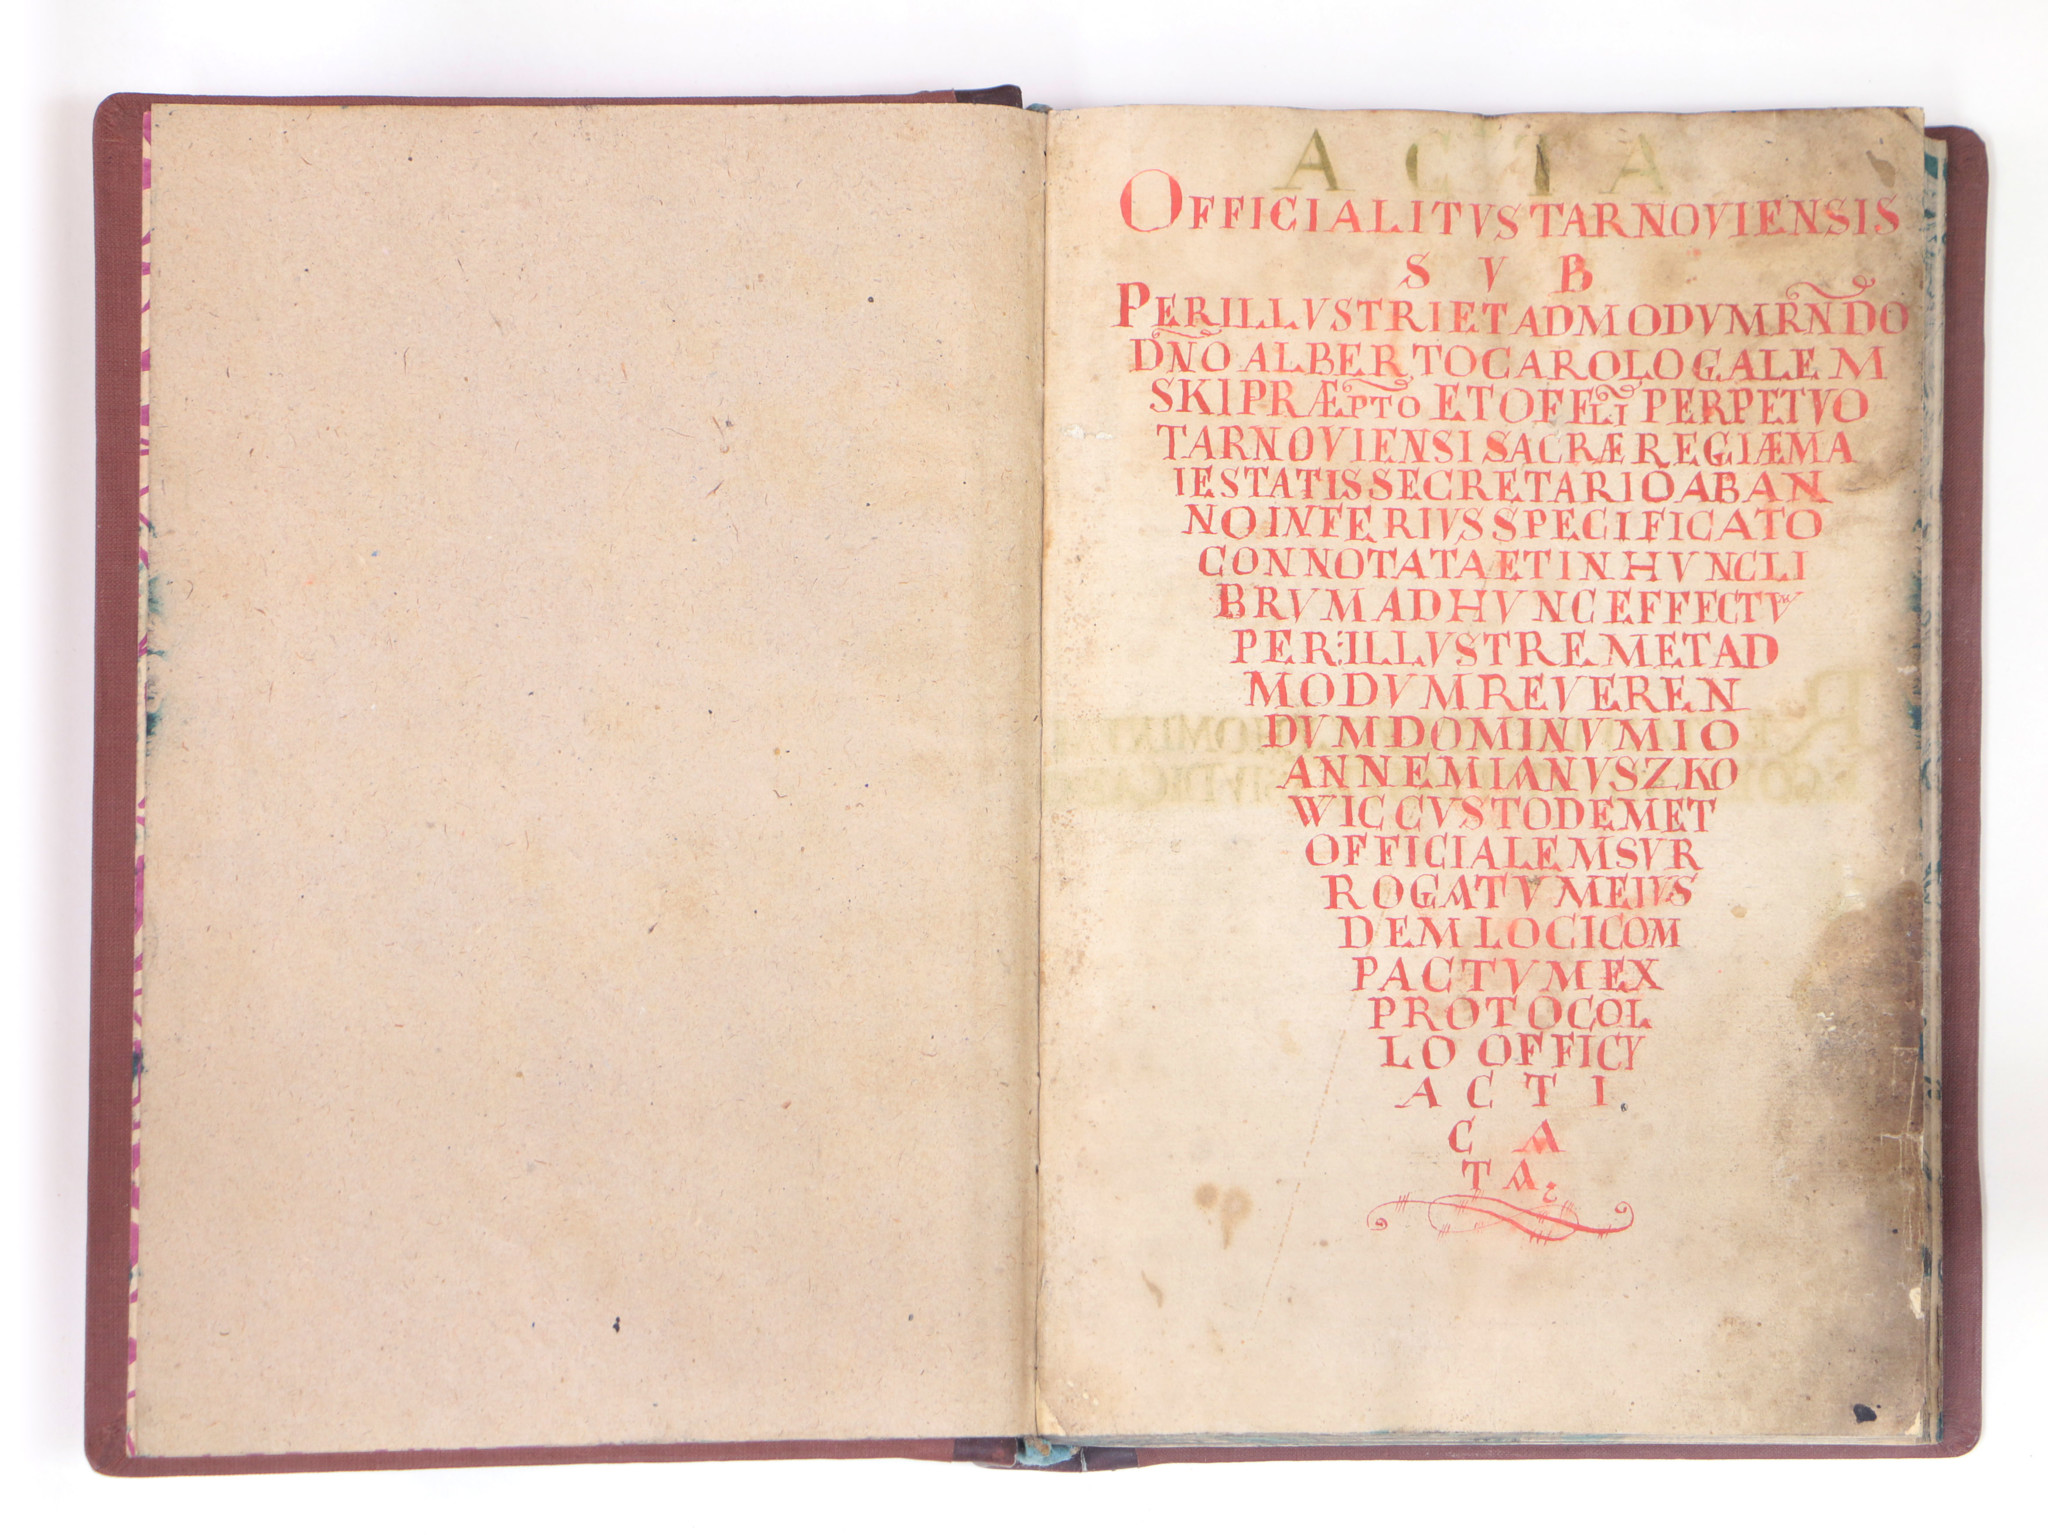 ACTA
OFFICIALITVS TARNOVIENSIS
SVB
PERILLVSTRI ET ADMODVM RNDO
DNO ALBERTO CAROLO GALEM
SKI PRÆPTO ET OFFLI PERPETVO
TARNOVIENSI SACRÆ REGIÆ MA
IESTATIS SECRETARIO AB AN
NO INFERIVS SPECIFICATO
CONNOTATA ET IN HVNC LI
BRVM AD HVNC EFFECTV
PERILLVSTREM ET AD
MODVM REVEREN
DVM DOMINVM IO
ANNEM IANVSZKO
WIC CVSTODEM ET
OFFICIALEM SVR
ROGATVM EIVS
DEM LOCI COM
PACTVM EX
PROTOCOL
LO OFFICY
ACTI
CA
TA